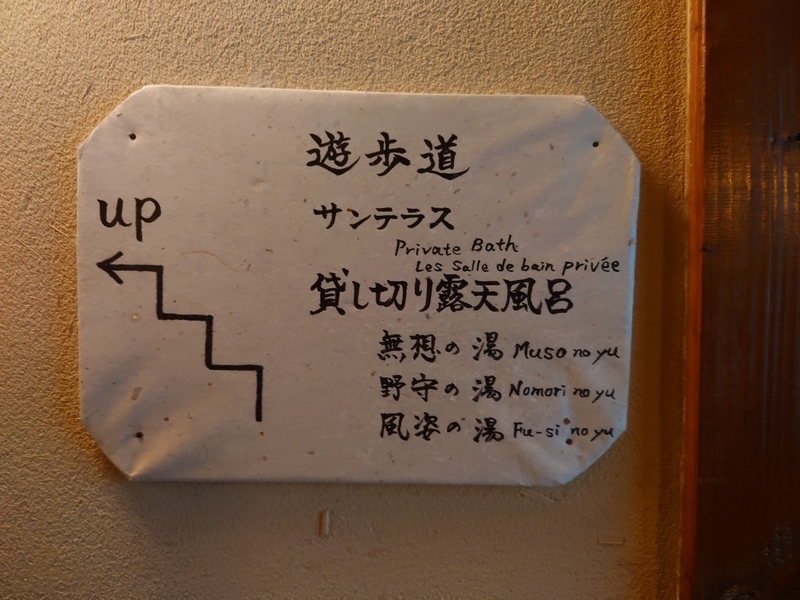 遊歩道
up
サンテラス
Private Bath
Les Salle de bain privée
貸し切り露天風呂
無想の湯 Muso no yu
野守の湯 Nomori no yu
風姿の湯 Fu-si no yu